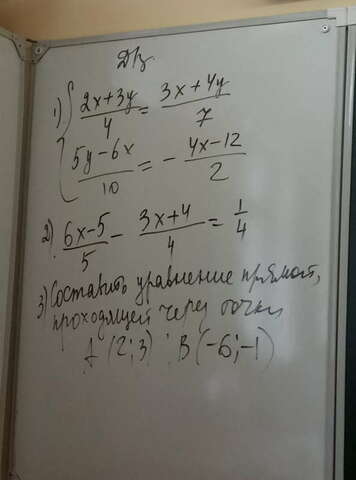 Дз
1) { (2x+3y)/4 = (3x+4y)/7
(5y-6x)/10 = - (4x-12)/2
2) (6x-5)/5 - (3x+4)/4 = 1/4
3) Составить уравнение прямой,
проходящей через точки
A (2; 3) ; B (-6; -1)